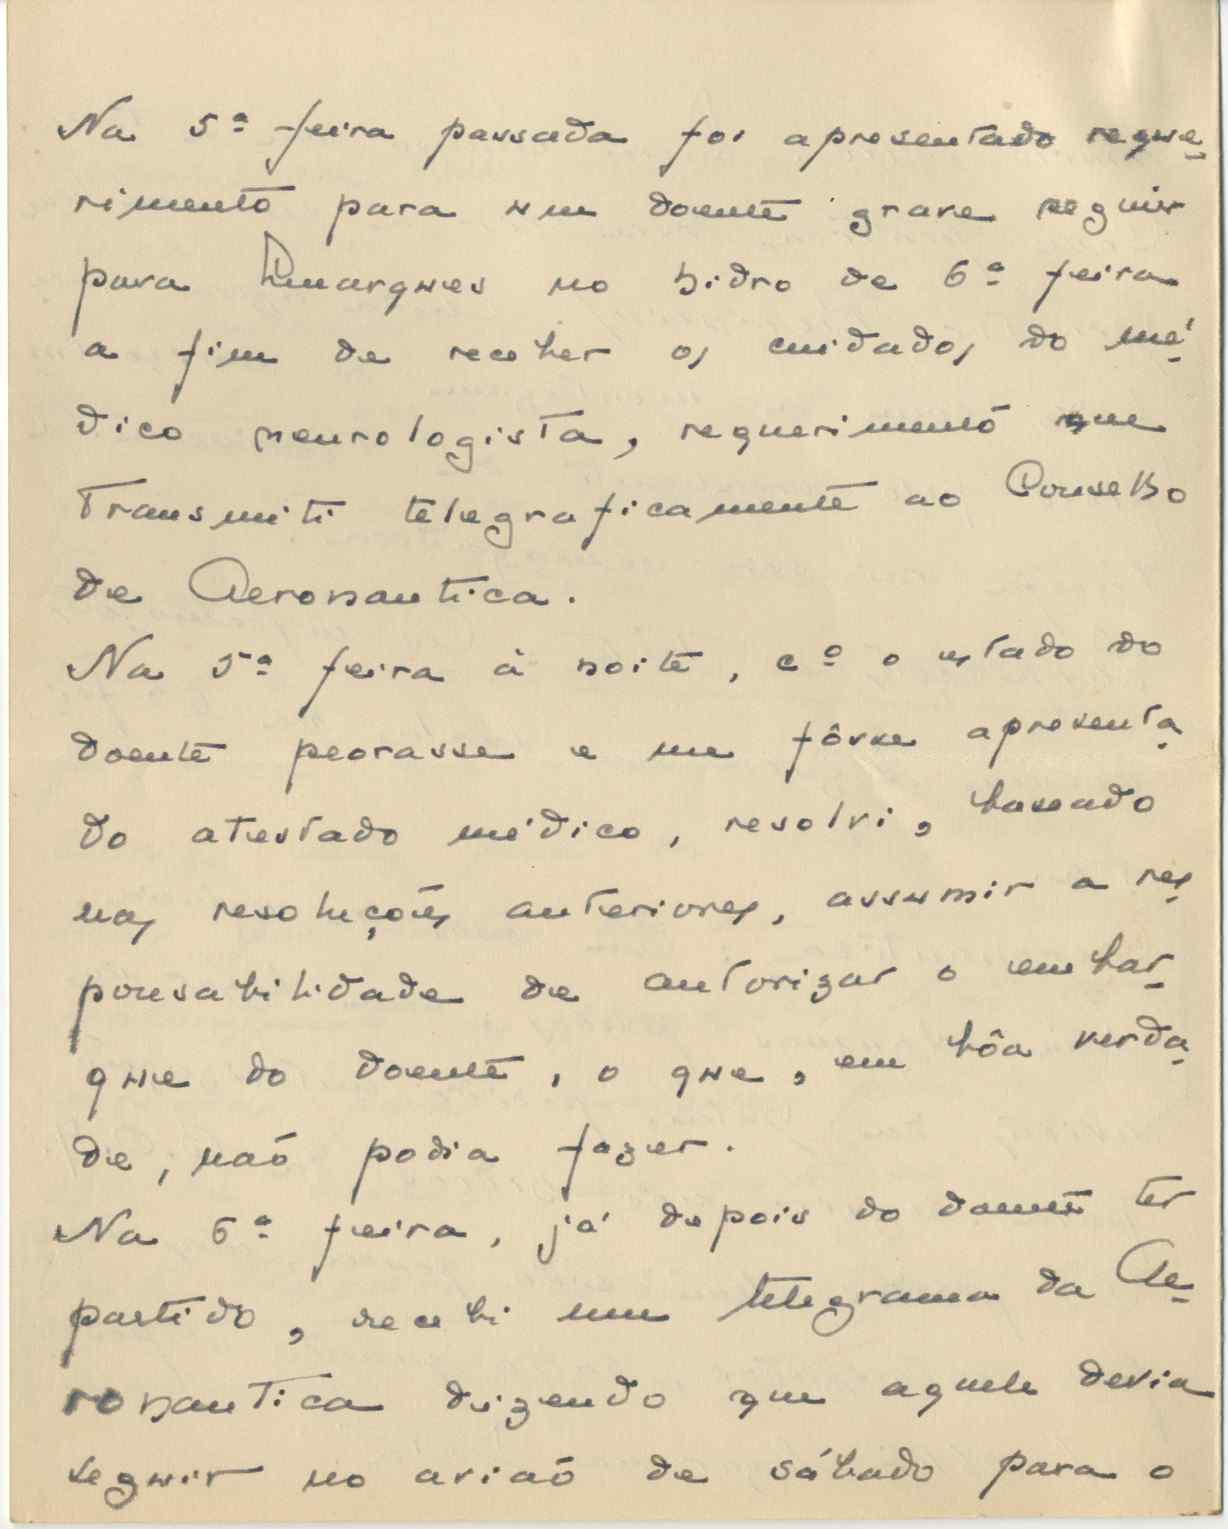 Na 5ª feira passada foi apresentado reque-
rimento para um doente grave seguir
para Lmarques no hidro de 6ª feira
a fim de receber os cuidados do mé-
dico neurologista, requerimento que
transmiti telegraficamente ao Conselho
de Aeronautica.
Na 5ª feira à noite, cº o estado do
doente peorasse e me fôsse apresenta-
do atestado médico, resolvi, baseado
nas resoluções anteriores, assumir a res-
ponsabilidade de autorizar o embar-
que do doente, o que, em bôa verda-
de, não podia fazer.
Na 6ª feira, já depois do doente ter
partido, recebi um telegrama da Ae-
ronautica dizendo que aquele devia
seguir no avião de sábado para o